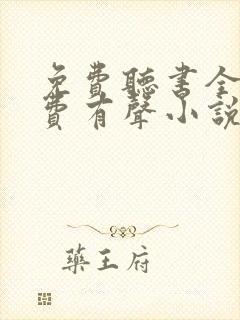 免費聽書全
費有聲小說
藥王府